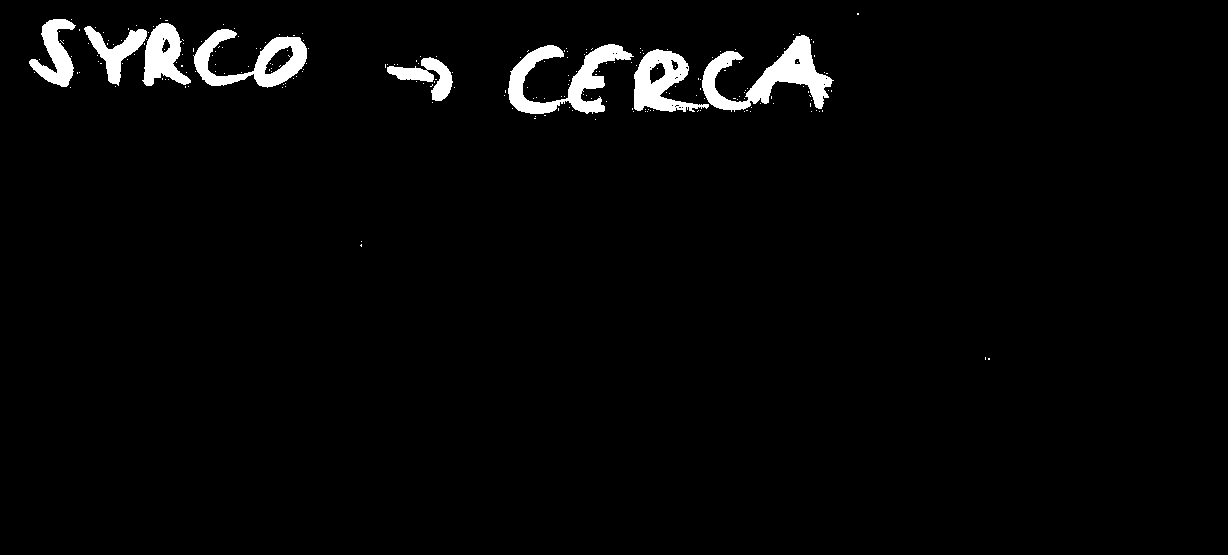 SYRCO → CERCA